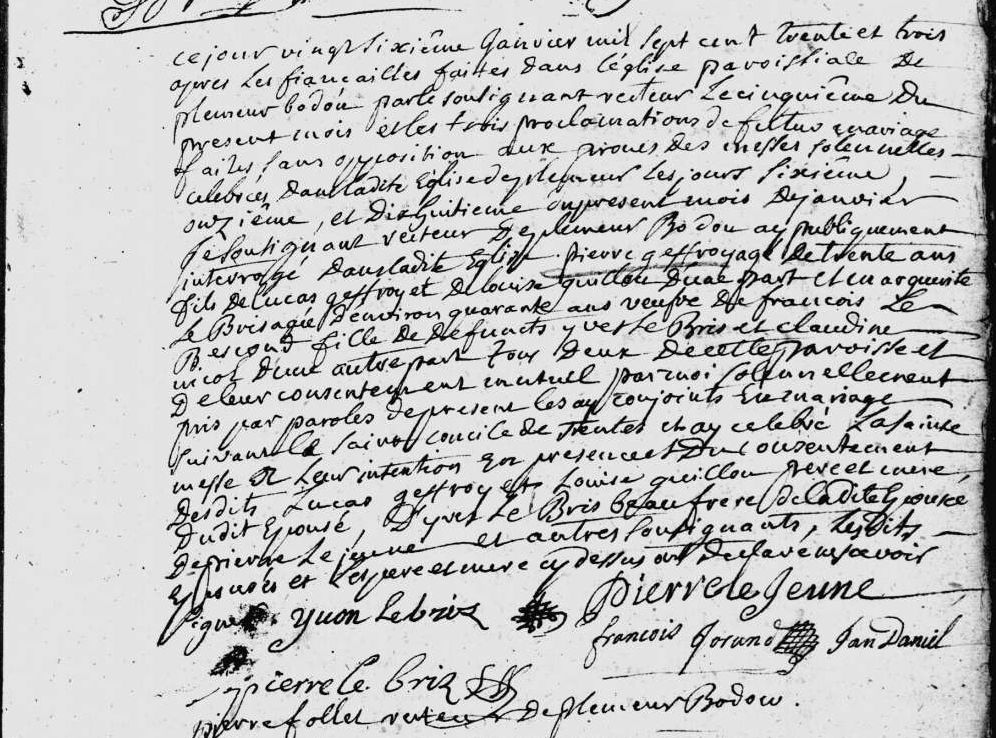 ce jour vingt sixiême Janvier mil sept cent trente et trois
apres les fiançailles faittes dans l'église paroissiale de
plemeur bodou par le soussignant recteur le cinquiême du
present mois et les trois proclamations de futur mariage
faites sans opposition aux prones des messes solennelles
celebrées dans ladite Eglise de plemeur les jours sixiême,
onziême, et dixhuitieme du present mois de janvier
je soussignant recteur de plemeur Bodou ay publiquement
interrogé dans ladite Eglise pierre geffroy agé de trente ans
fils de Lucas geffroy et de louise guillou d'une part et marguerite
le Bris agée d'environ quarante ans veufve de francois Le
Bescond fille de defuncts yves le Bris et claudine
nicol d'une autre part tous deux de cette paroisse et
de leur consentement mutuel par moi solennellement
pris par paroles de present les ay conjoints En mariage
suivant le saint concile de Trente et ay celebré la sainte
messe à Leur intention En presence et du consentement
desdits Lucas geffroy et Louise guillou pere et mere
dudit Epousé, d'yves Le Bris beaufrere de ladite Epousé
de pierre Le jeune et autres soussignants, lesdits
Epousés et les pere et mere cy dessus ont declaré ne scavoir
signer. yuon le briz pierre le Jeune
francois Jan Daniel
pierre le briz
pierre follet recteur de plemeur Bodou.